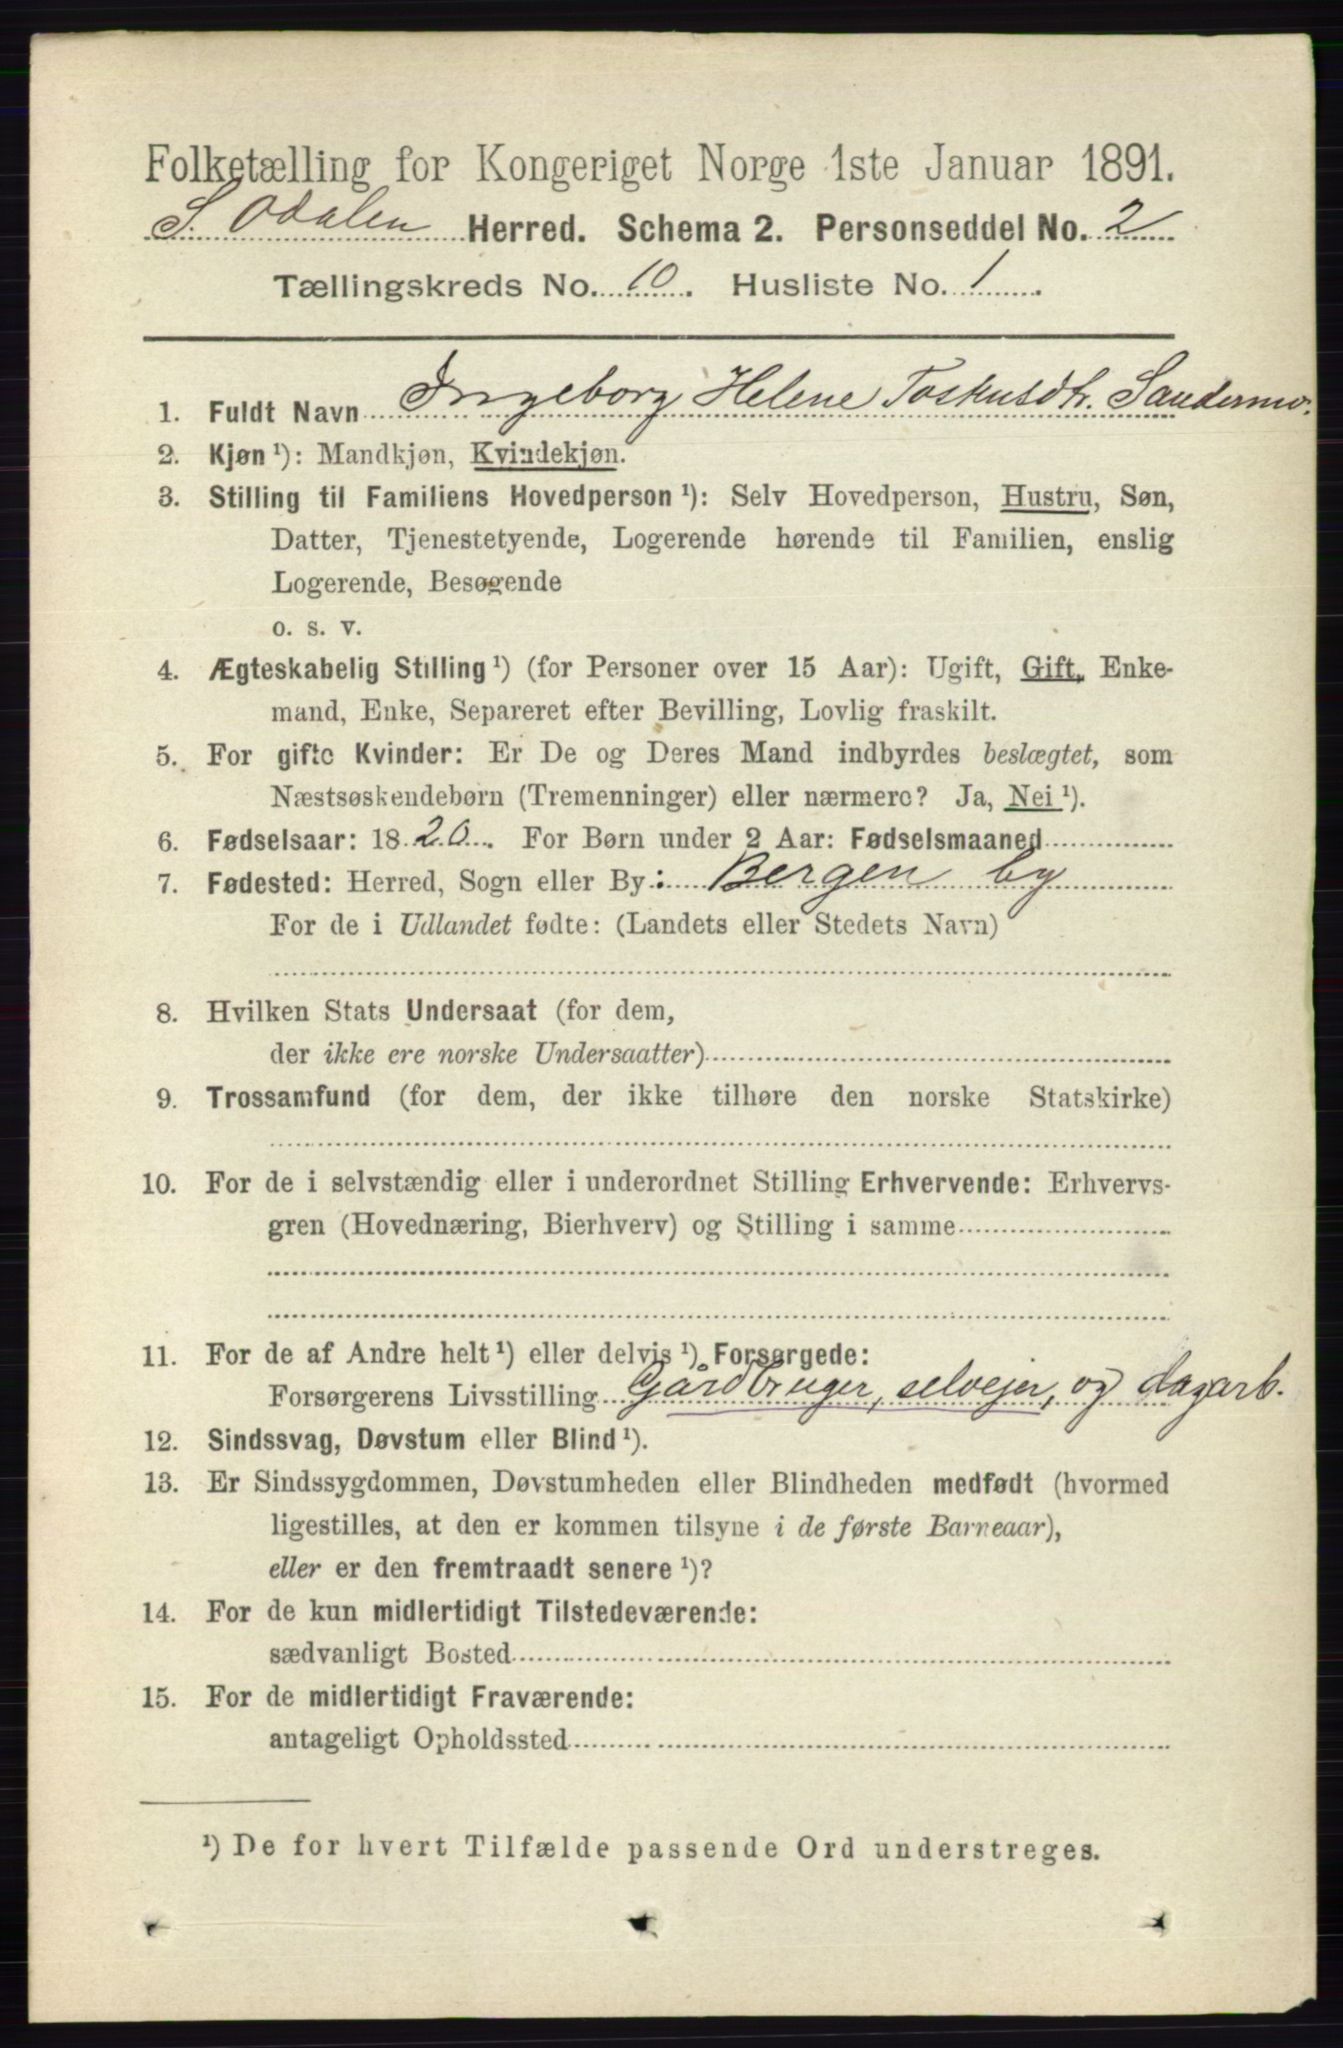 Folketælling for Kongeriget Norge 1ste Januar 1891.
S. Odalen Herred. Schema 2. Personseddel No. 2
Tællingskreds No. 10. Husliste No. 1.
1. Fuldt Navn Ingeborg Helene Sandermo.
2. Kjøn ¹): Mandkjøn, Kvindekjøn.
3. Stilling til Familiens Hovedperson ¹): Selv Hovedperson, Hustru, Søn,
Datter, Tjenestetyende, Logerende hørende til Familien, enslig
Logerende, Besøgende
o. s. v.
4. Ægteskabelig Stilling ¹) (for Personer over 15 Aar): Ugift, Gift, Enke-
mand, Enke, Separeret efter Bevilling, Lovlig fraskilt.
5. For gifte Kvinder: Er De og Deres Mand indbyrdes beslægtet, som
Næstsøskendebørn (Tremenninger) eller nærmere? Ja, Nei ¹).
6. Fødselsaar: 1820. For Børn under 2 Aar: Fødselsmaaned
7. Fødested: Herred, Sogn eller By: Bergen by
For de i Udlandet fødte: (Landets eller Stedets Navn)
8. Hvilken Stats Undersaat (for dem,
der ikke ere norske Undersaatter)
9. Trossamfund (for dem, der ikke tilhøre den norske Statskirke)
10. For de i selvstændig eller i underordnet Stilling Erhvervende: Erhvervs-
gren (Hovednæring, Bierhverv) og Stilling i samme
11. For de af Andre helt ¹) eller delvis ¹) Forsørgede:
Forsørgerens Livsstilling Gårdbruger, selvejer, og dagarb.
12. Sindssvag, Døvstum eller Blind ¹).
13. Er Sindssygdommen, Døvstumheden eller Blindheden medfødt (hvormed
ligestilles, at den er kommen tilsyne i de første Barneaar),
eller er den fremtraadt senere ¹)?
14. For de kun midlertidigt Tilstedeværende:
sædvanligt Bosted
15. For de midlertidigt Fraværende:
antageligt Opholdssted
¹) De for hvert Tilfælde passende Ord understreges.